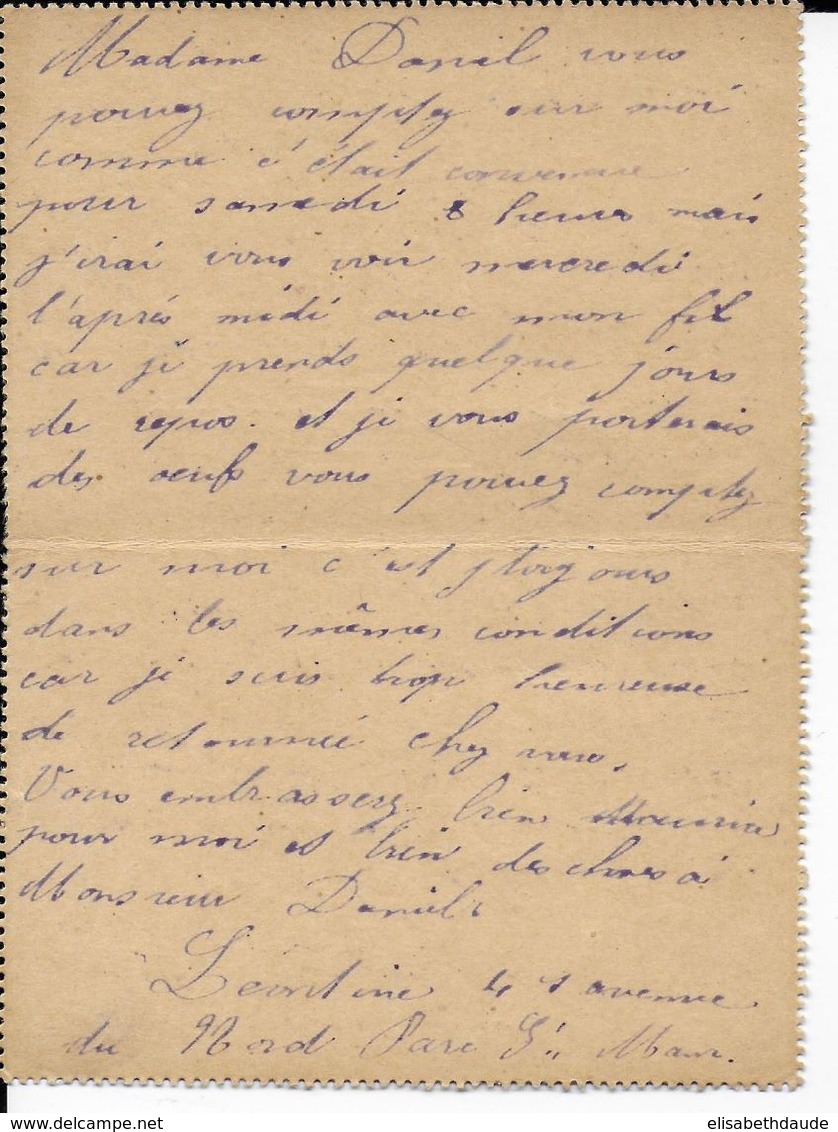 Madame Daniel vous
pouvez comptez sur moi
comme c'était convenue
pour samedi 8 heures mais
j'irai vous voir mercredi
l'après midi avec mon fil
car je prends quelque jours
de repos. et je vous porterais
des oeufs vous pouvez comptez
sur moi c'est toujours
dans les mêmes conditions
car je suis trop heureuse
de retournée chez vous.
Vous embrasserez bien Maurice
pour moi et bien des choses à
Monsieur Daniel
Léontine 41 avenue
du Nord Parc St. Maur.
elisabethdaude